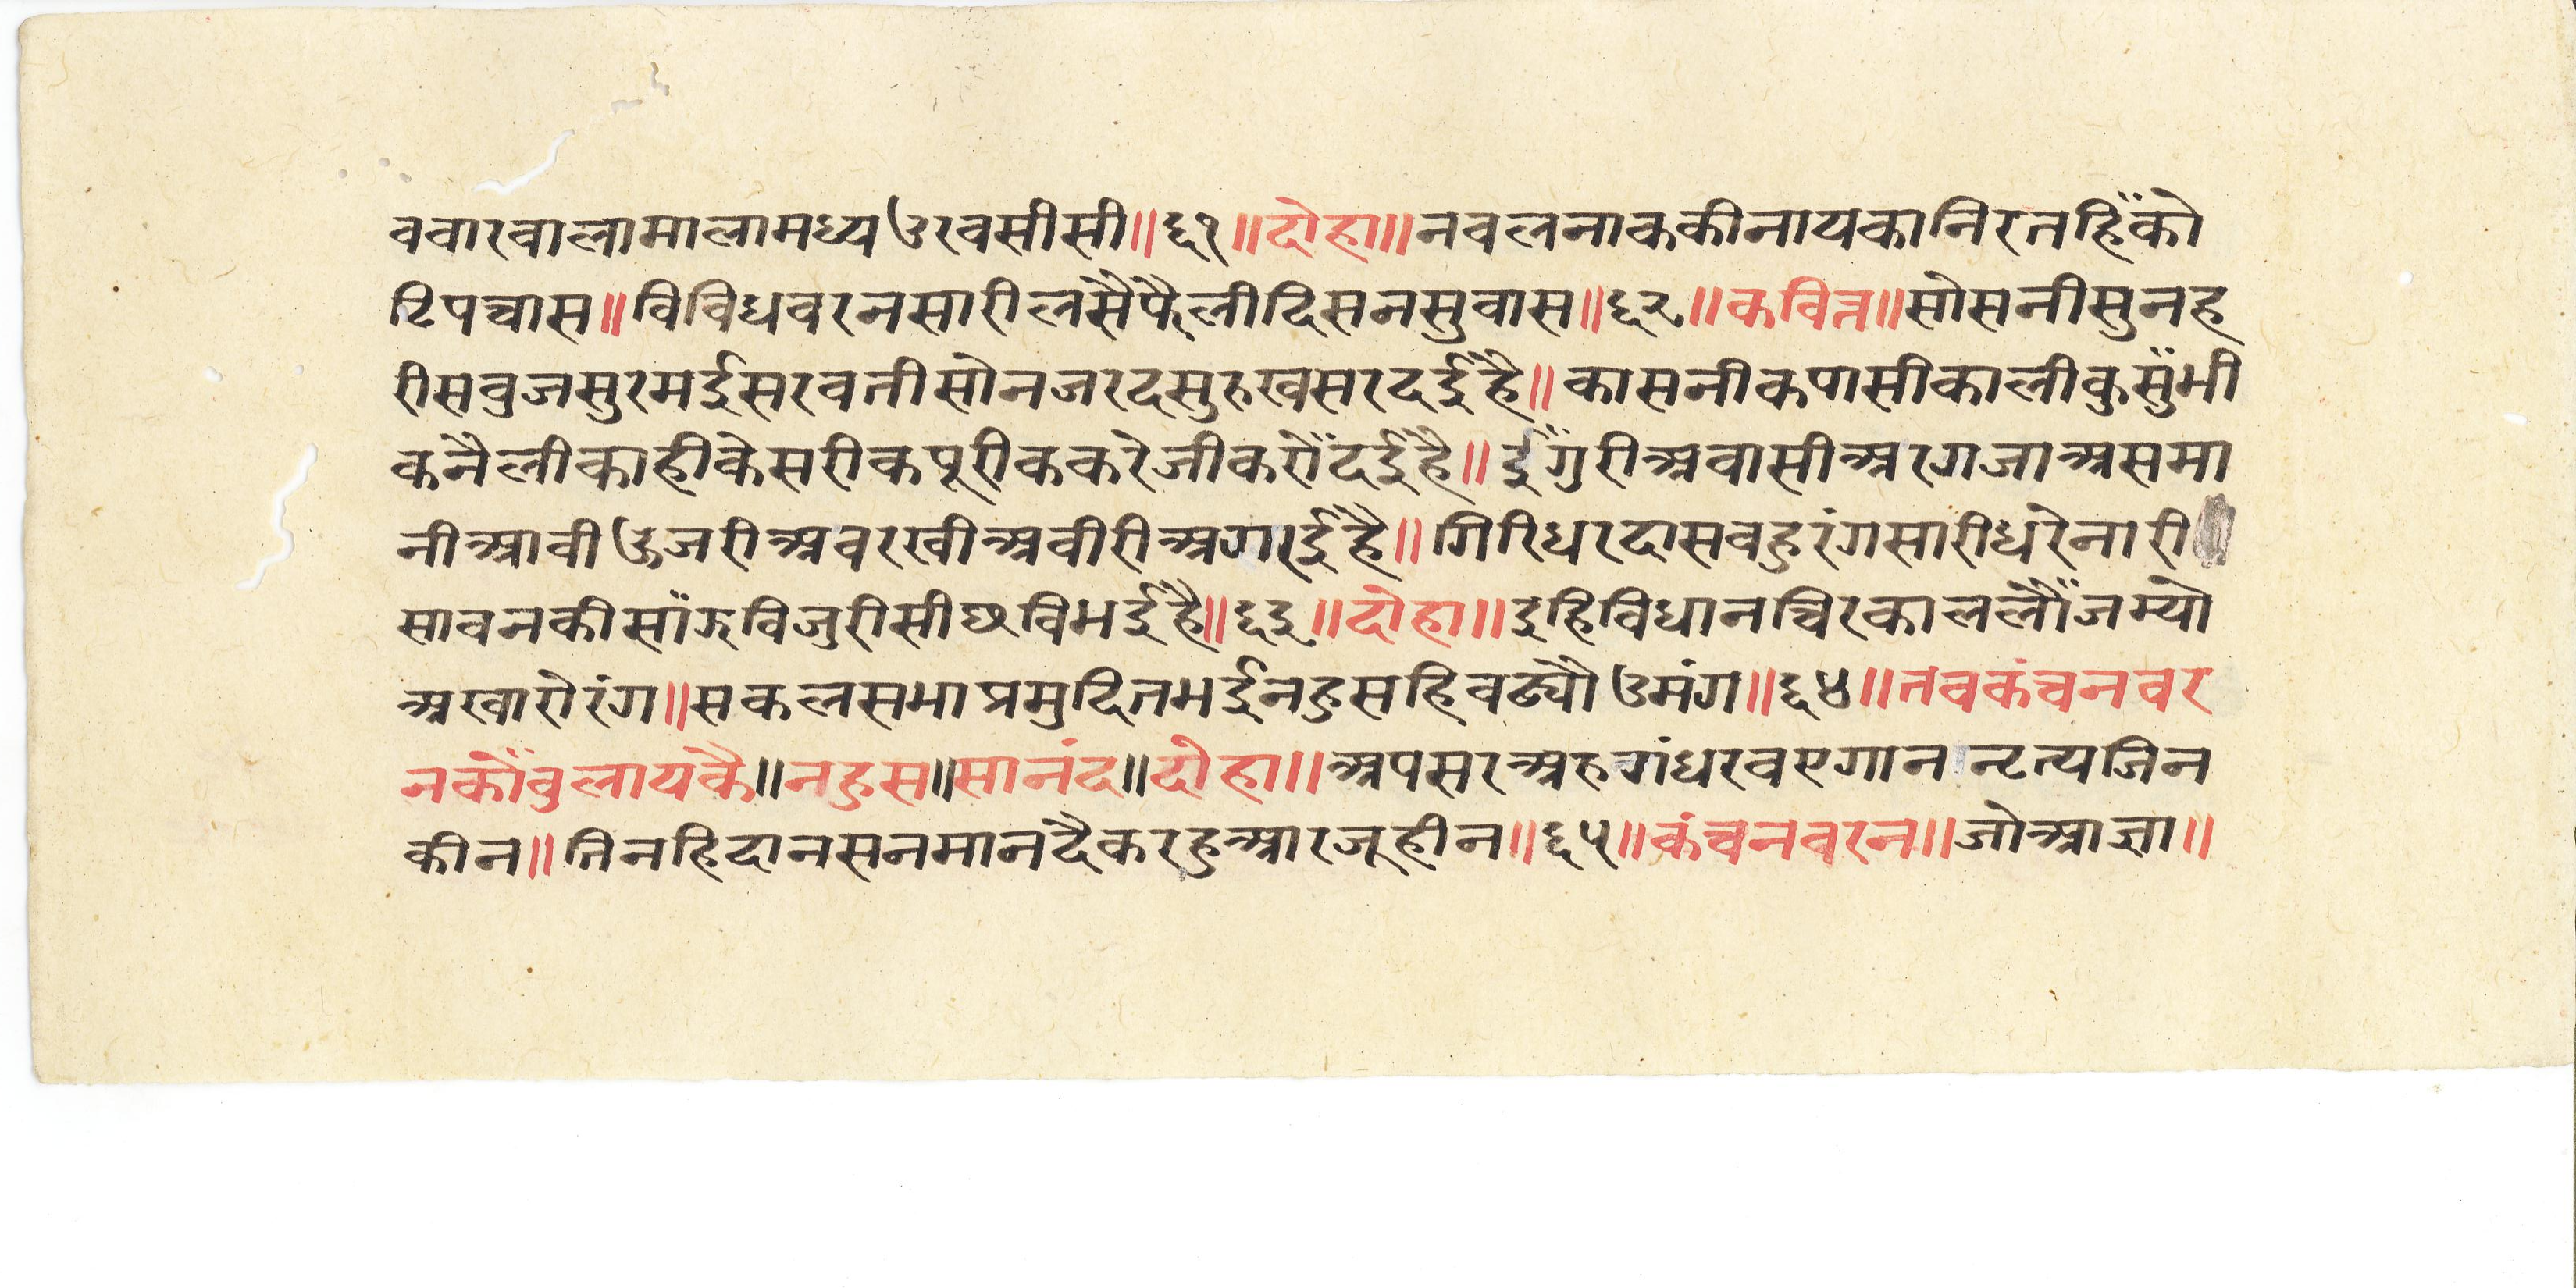 ववारवालामालामध्यउरवसीसी॥६१॥दोहा॥नवलनाककीनायकानिरतहिँको
टिपचास॥विविधवरनसारीलसैफैलीदिसनसुवास॥६२॥कवित्त॥सोसनीसुनह
रीसवुजसुरमईसरवतीसोनजरदसुरुखसरदईहै॥कासनीकपासीकालीकुसुँभी
कनैलीकाहीकेसरीकपूरीककरेजीकरौँदईहै॥ईँगुरीअवासीअरगजाअसमा
नीआवीऊजरीअवरखीअवीरीअगरईहै॥गिरिधरदासवहुरंगसारीधरेनारी
सावनकीसाँझविजुरीसीछविभईहै॥६३॥दोहा॥इहिविधानचिरकाललौँजम्यो
अखारोरंग॥सकलसभाप्रमुदितभईनहुसहिवढ्यौउमंग॥६४॥तवकंचनवर
नकोँवुलायकै॥नहुस॥सानंद॥दोहा॥अपसरअरुगंधरवएगाननृत्यजिन
कीन॥तिनहिदानसनमानदैकरहुआरजूहीन॥६५॥कंचनवरन॥जोआज्ञा॥